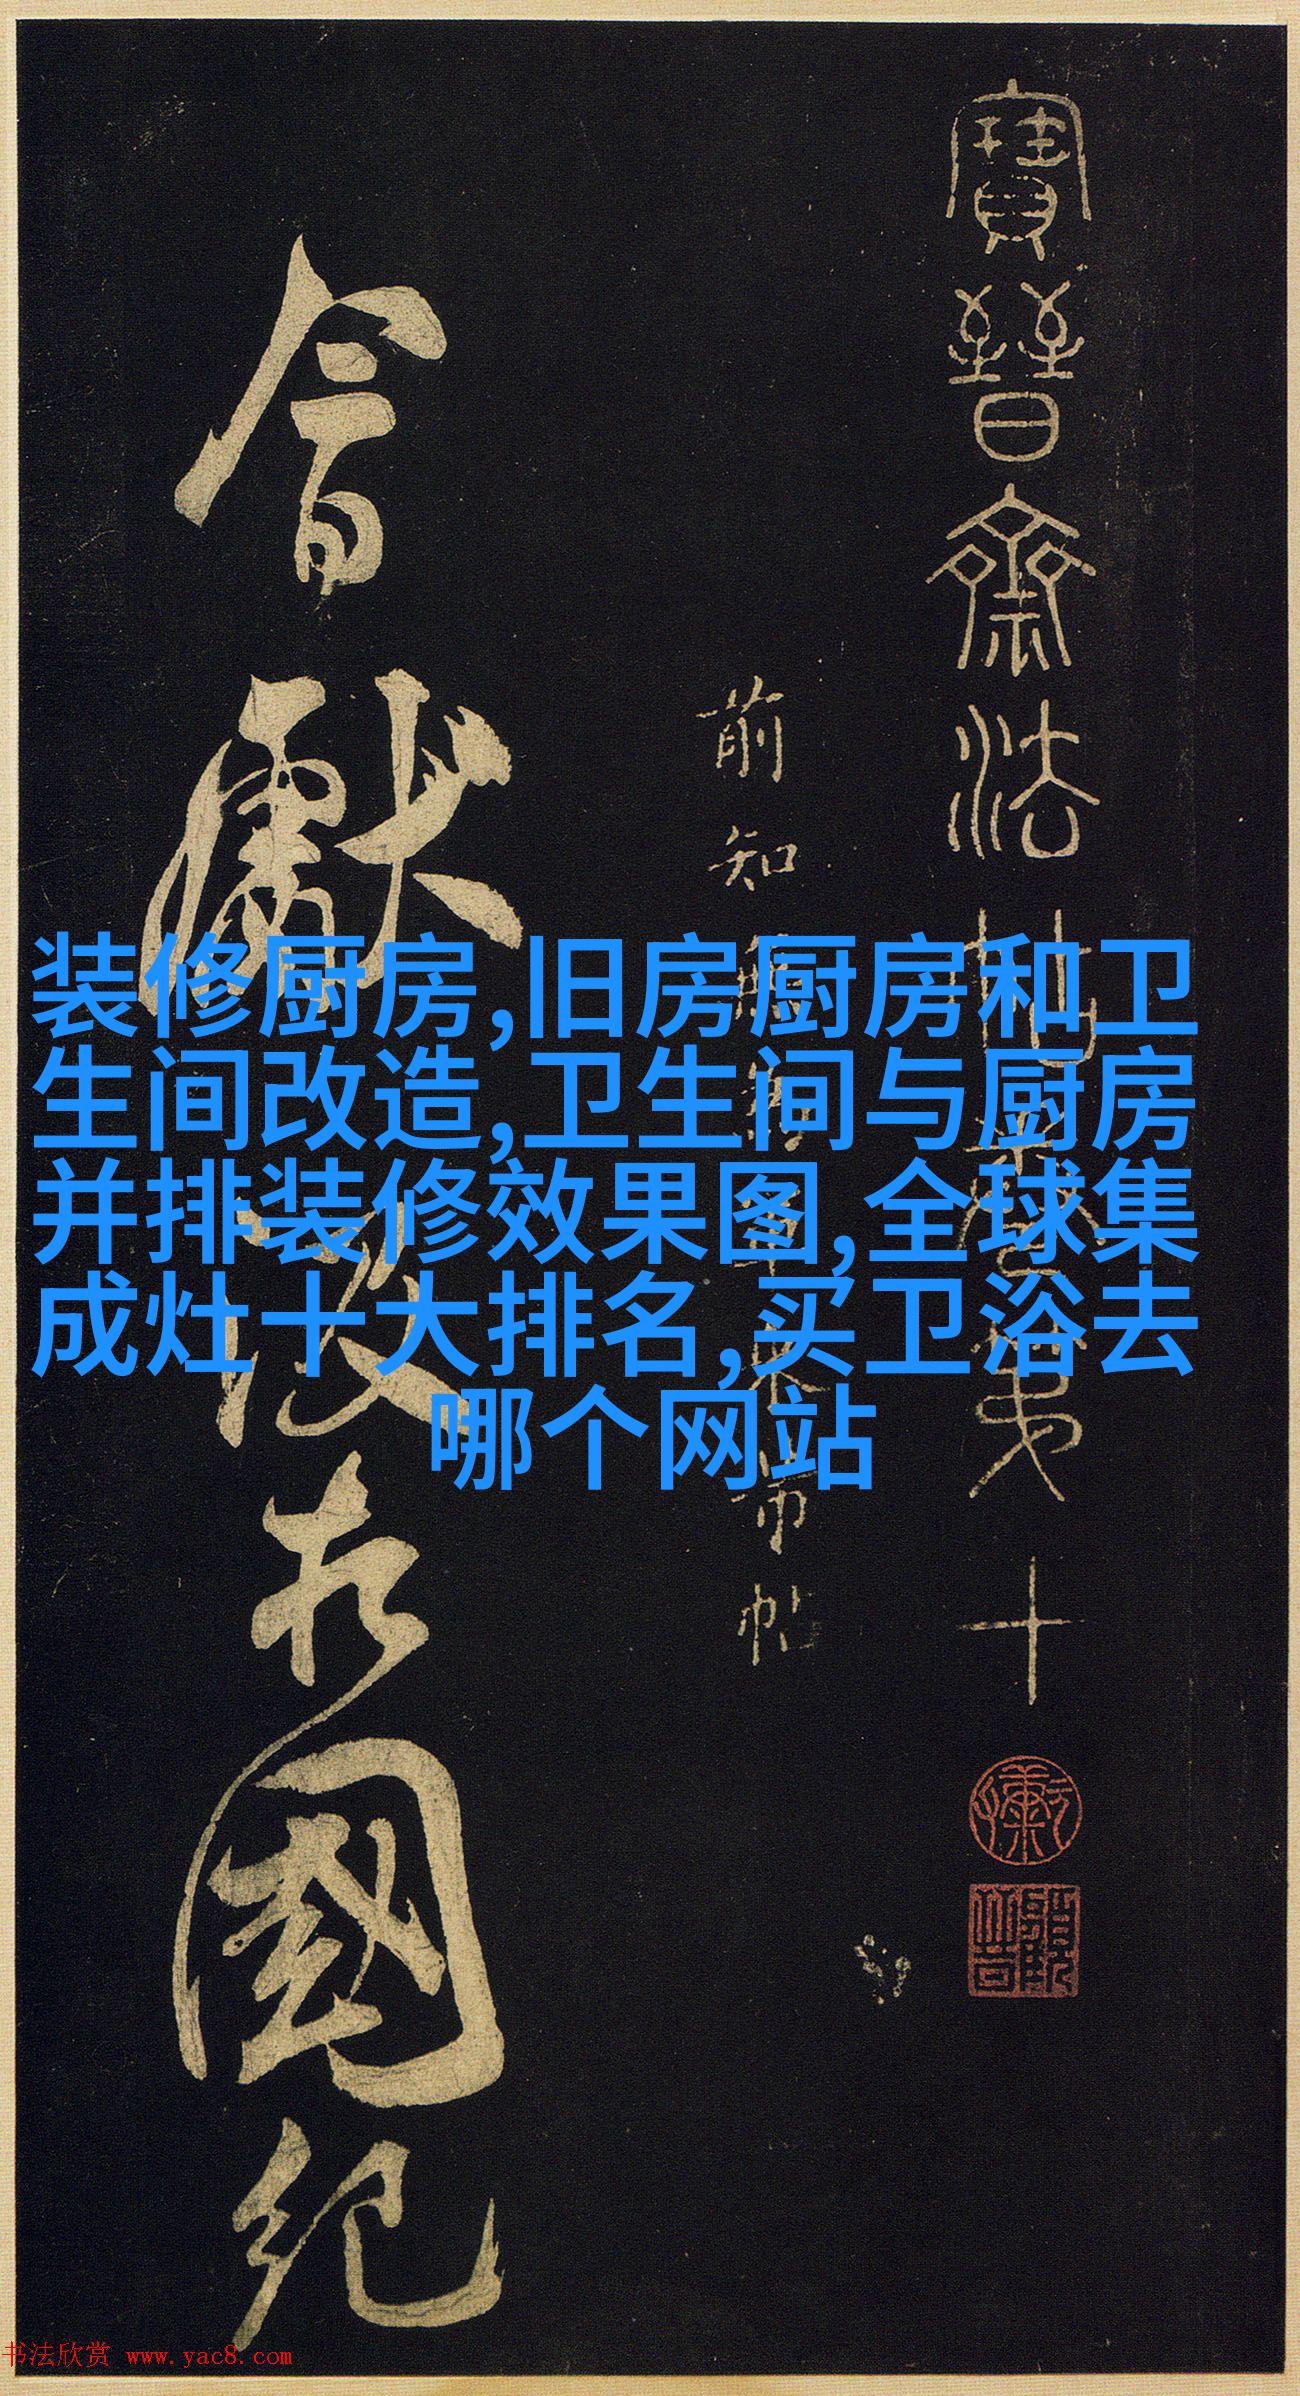 寶晉齋法帖卷第十
前知無爲軍米芾帖
會獻
改相國紀
装修厨房,旧房厨房和卫
生间改造,卫生间与厨房
并排装修效果图,全球集
成灶十大排名,买卫浴去
哪个网站
书法欣赏 www.yac8.com